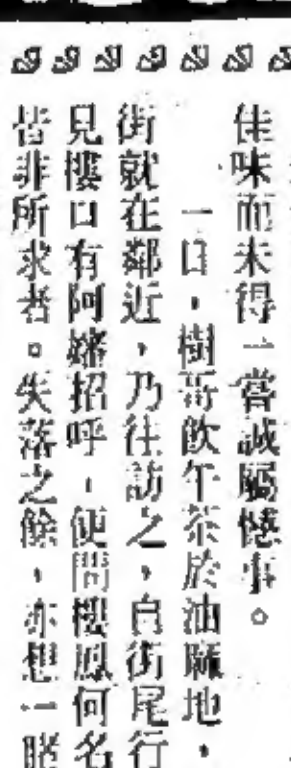 佳味而未得一嘗誠屬憾事。
一日，樹哥飲午茶於油麻地，
街就在鄰近，乃往訪之，自街尾行
見樓口有阿嬸招呼，便問樓鳳何名
皆非所求者。失落之餘，亦想一睹